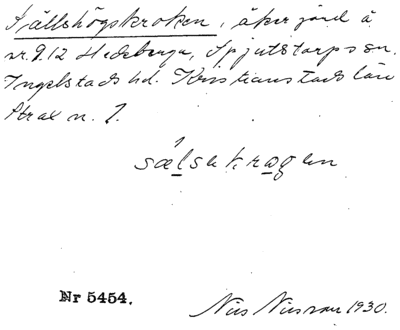 Själlshögskroken, åkerjord å
nr 9.12 Hedeberga, Spjutstorps sn.
Ingelstads hd. Kristianstads län
Strax n. 7.
sælsəkrogən
Nr 5454.
Nils Nilsson 1930.